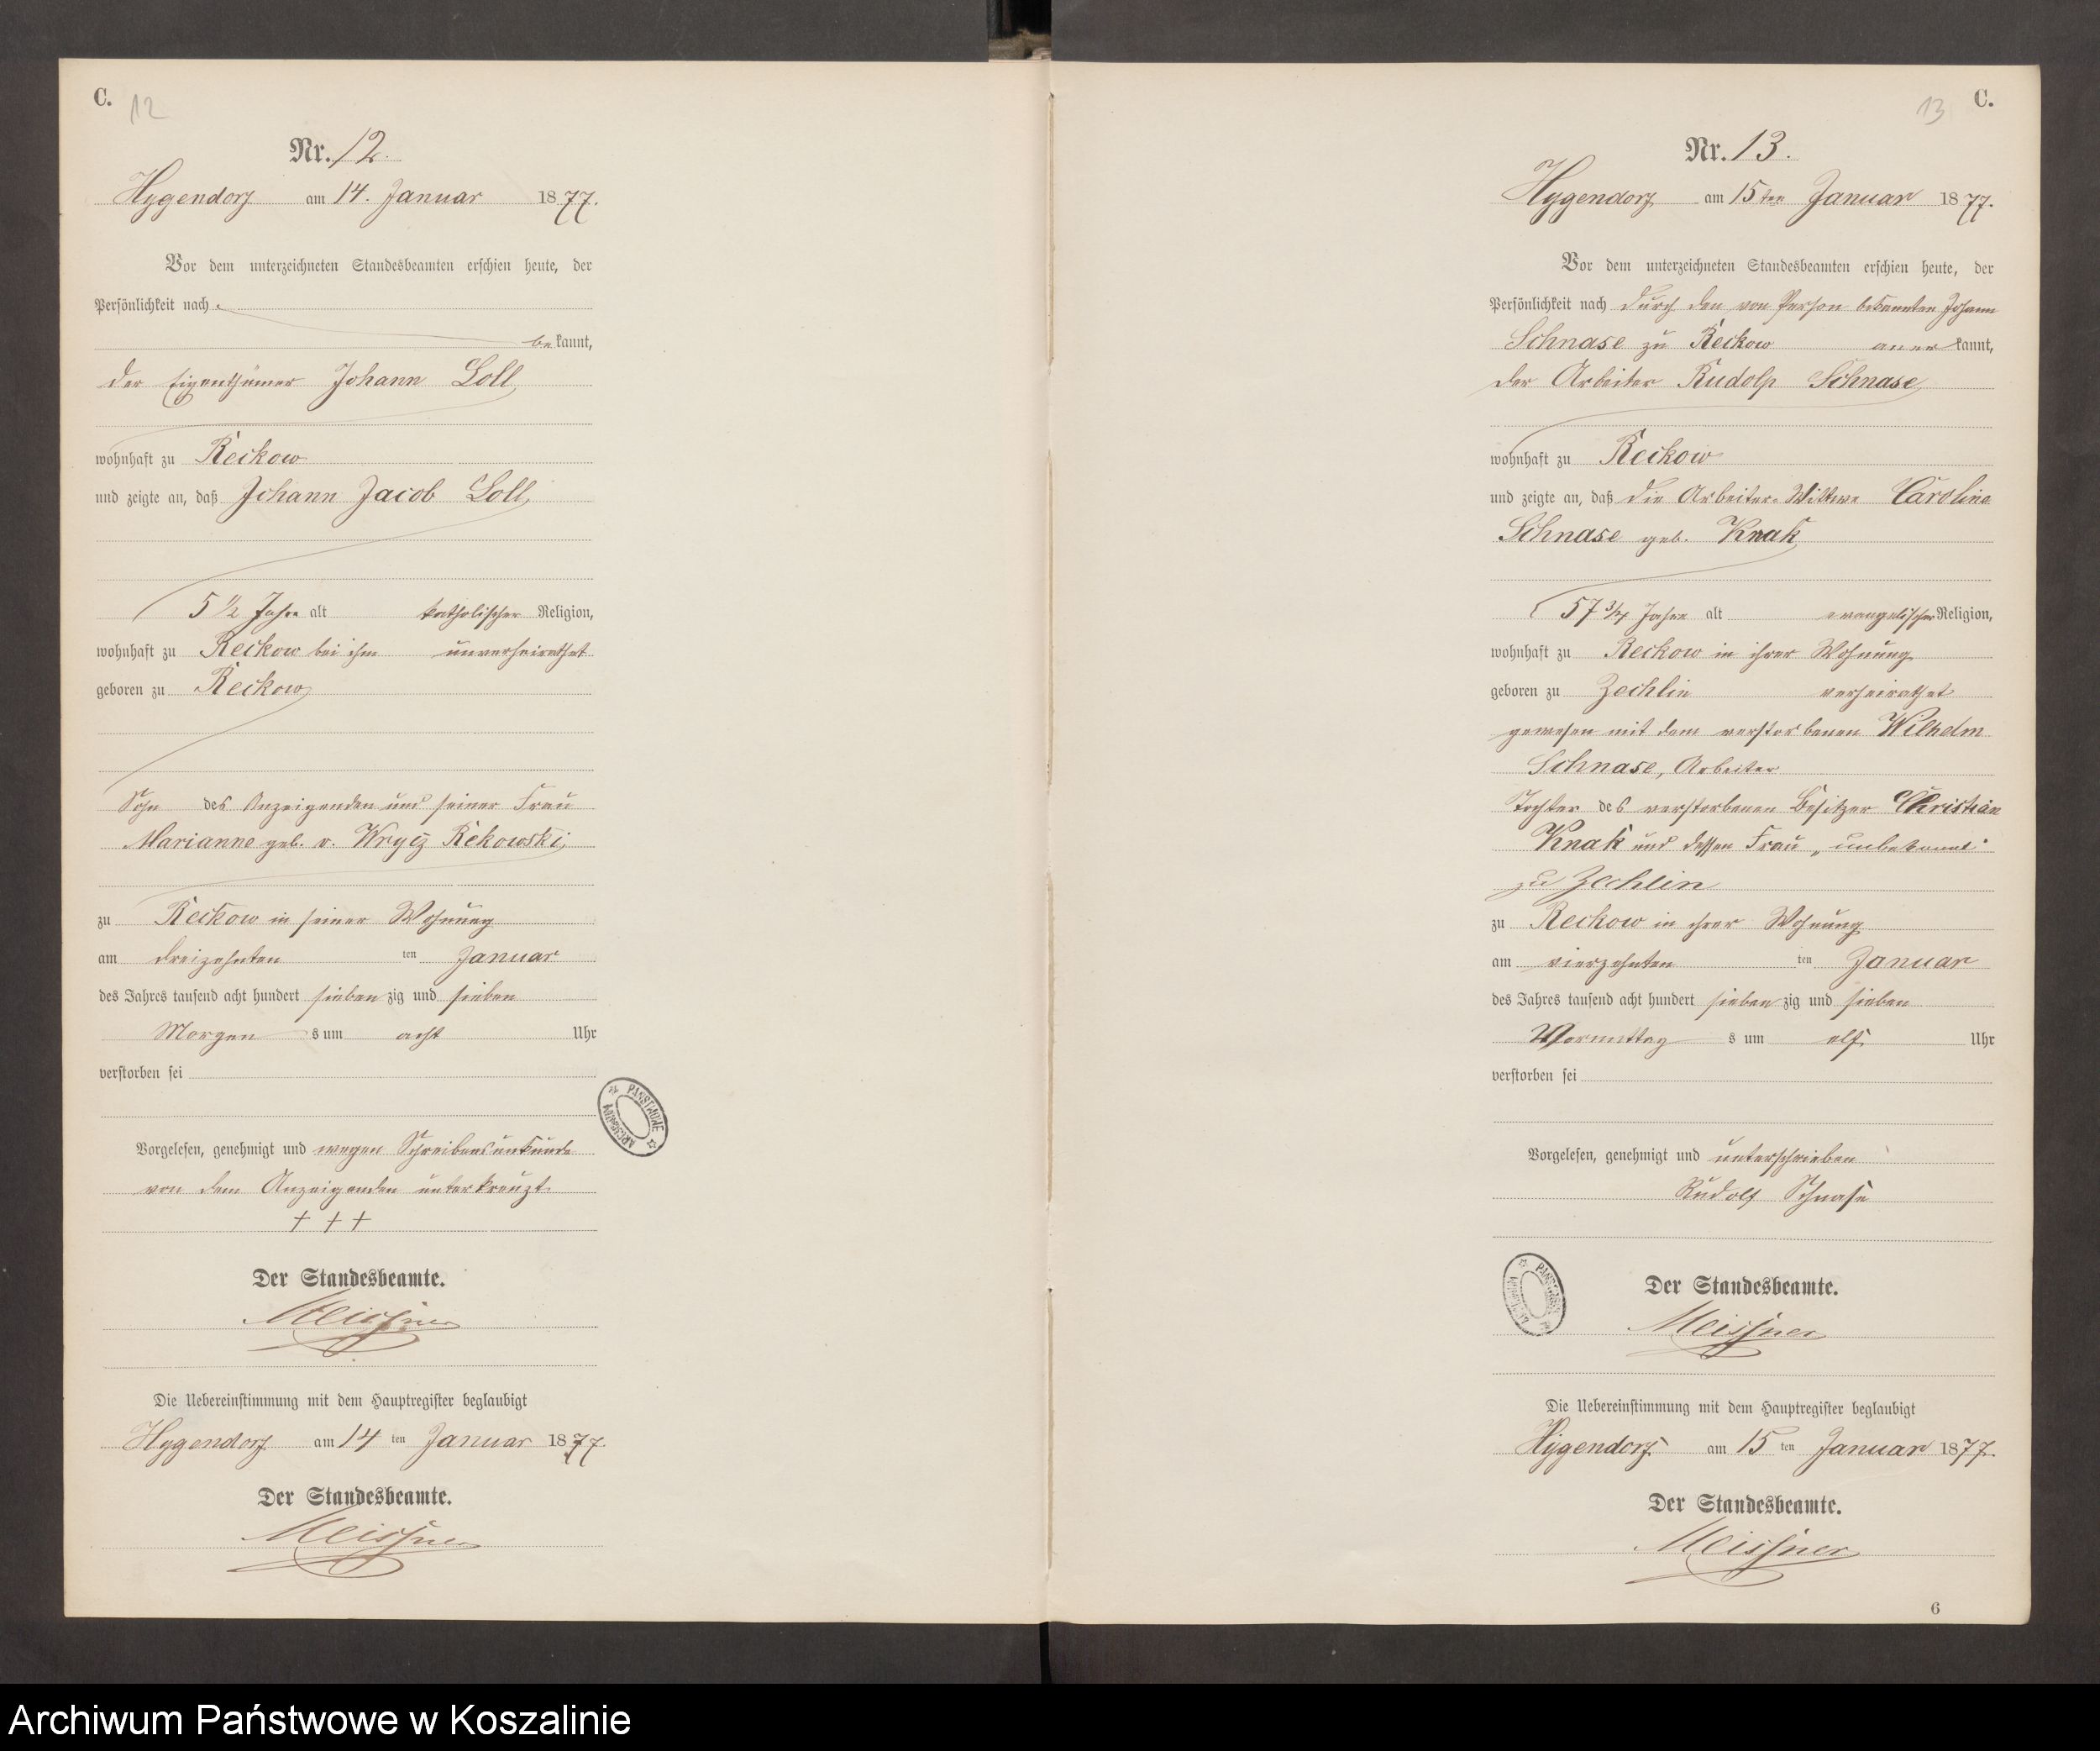 C.
12
Nr. 12.
Hygendorf am 14. Januar 1877.
Vor dem unterzeichneten Standesbeamten erschien heute, der
Persönlichkeit nach
bekannt,
der Eigenthümer Johann Loll
wohnhaft zu Reckow
und zeigte an, daß Johann Jacob Loll,
5 1/2 Jahre alt katholischer Religion,
wohnhaft zu Reckow bei ihm unverheirathet
geboren zu Reckow
Sohn des Anzeigenden und seiner Frau
Marianne geb. v. Wrycz Rekowski,
zu Reckow in seiner Wohnung
am dreizehnten ten Januar
des Jahres tausend acht hundert siebenzig und sieben
Morgens um acht Uhr
verstorben sei
Vorgelesen, genehmigt und wegen Schreibensunkunde
von dem Anzeigenden unterkreuzt.
+ + +
Der Standesbeamte.
Meissner
Die Uebereinstimmung mit dem Hauptregister beglaubigt
Hygendorf am 14 ten Januar 1877.
Der Standesbeamte.
Meissner
ARCHIWUM PAŃSTWOWE
13
C.
Nr. 13.
Hygendorf am 15ten Januar 1877.
Vor dem unterzeichneten Standesbeamten erschien heute, der
Persönlichkeit nach durch den von Person bekannten Johann
Schnase zu Reckow anerkannt,
der Arbeiter Rudolp Schnase,
wohnhaft zu Reckow
und zeigte an, daß die Arbeiter-Wittwe Caroline
Schnase geb. Knak
57 3/4 Jahre alt evangelischer Religion,
wohnhaft zu Reckow in ihrer Wohnung
geboren zu Zechlin verheirathet
gewesen mit dem verstorbenen Wilhelm
Schnase, Arbeiter
Tochter des verstorbenen Besitzer Christian
Knak und dessen Frau „unbekannt“
zu Zechlin
zu Reckow in ihrer Wohnung
am vierzehnten ten Januar
des Jahres tausend acht hundert siebenzig und sieben
Vormittags um elf Uhr
verstorben sei
Vorgelesen, genehmigt und unterschrieben
Rudolf Schnase
Der Standesbeamte.
Meissner
Die Uebereinstimmung mit dem Hauptregister beglaubigt
Hygendorf am 15 ten Januar 1877.
Der Standesbeamte.
Meissner
6
Archiwum Państwowe w Koszalinie